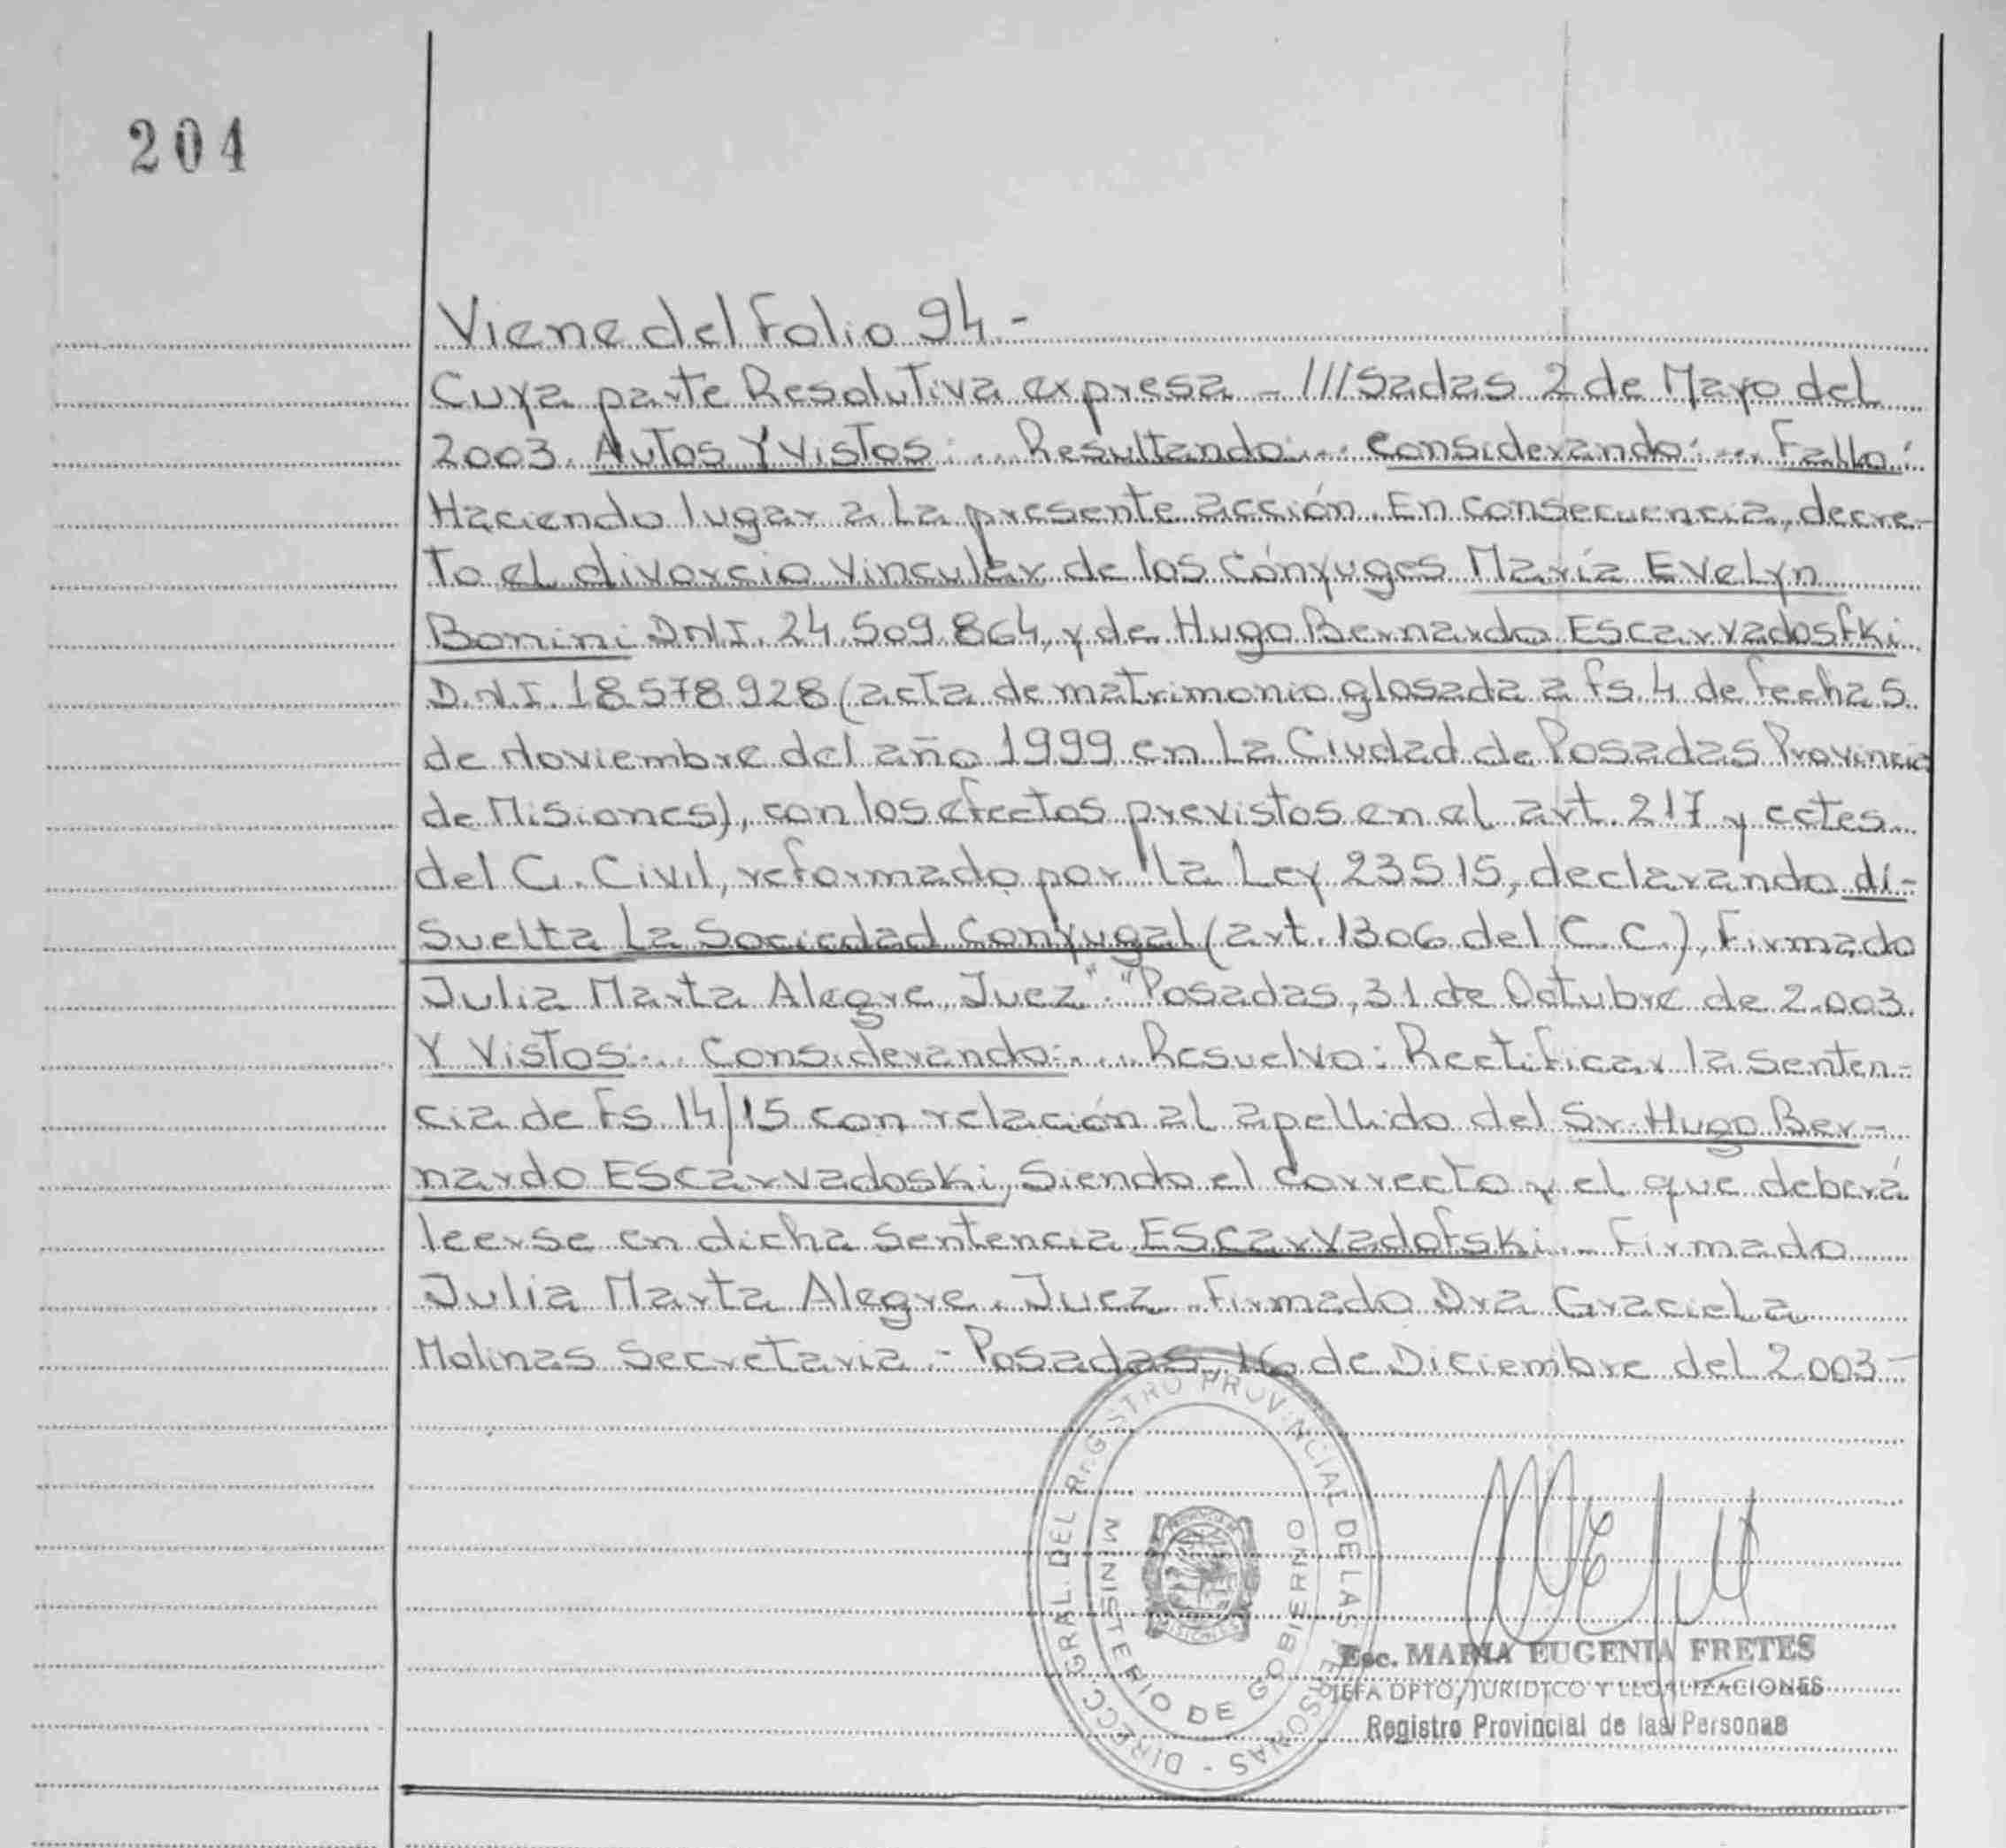 204
Viene del Folio 94 -
Cuya parte Resolutiva expresa - ///sadas 2 de Mayo del
2003. Autos Y Vistos:... Resultando:... Considerando:... Fallo:
Haciendo lugar a la presente acción. En consecuencia, decre-
to el divorcio vincular de los cónyuges María Evelyn
Bonini D.N.I. 24.509.864, y de Hugo Bernardo Escarvadosfki
D.N.I. 18.578.928 (acta de matrimonio glosada a fs. 4 de fecha 5
de Noviembre del año 1999 en la Ciudad de Posadas Provincia
de Misiones), con los efectos previstos en el art. 217 y cctes
del C. Civil, reformado por la Ley 23515, declarando di-
suelta la Sociedad Conyugal (art. 1306 del C.C.), Firmado
Julia Marta Alegre, Juez". "Posadas, 31 de Octubre de 2.003.
Y Vistos:... Considerando:... Resuelvo: Rectificar la senten-
cia de Fs 14/15 con relación al apellido del Sr. Hugo Ber-
nardo Escarvadoski, Siendo el correcto y el que deberá
leerse en dicha sentencia Escarvadofski. - Firmado
Julia Marta Alegre. Juez. Firmado Dra Graciela
Molinas Secretaria - Posadas, 16 de Diciembre del 2.003 -
DIRECC. GRAL. DEL REGISTRO PROVINCIAL DE LAS PERSONAS -
MINISTERIO DE GOBIERNO
MISIONES
Esc. MARIA EUGENIA FRETES
JEFA DPTO. JURIDICO Y LEGALIZACIONES
Registro Provincial de las Personas